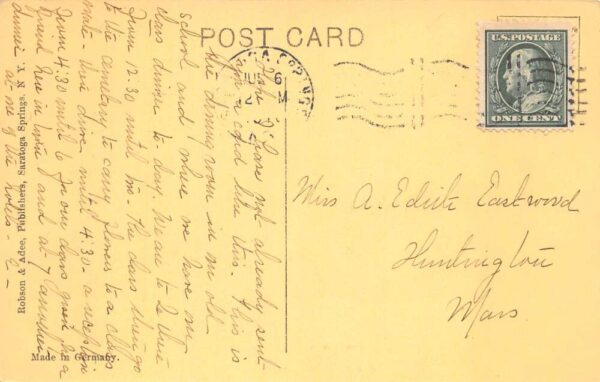 POST CARD
U.S. POSTAGE
ONE CENT
I hope I have not already sent
you a card like this. This is
the dining room in my old
school and where we have our
class dinner to day. We are to be there
from 12:30 until two - The class then go
to the cemetery to carry flowers to a class
mate - then drive until 4:30 - a reception
from 4:30 until 6 for our class given by a
friend here in town and at 7 another
dinner at one of the hotels - E -
Miss A. Edith Eastwood
Huntington
Mass.
Robson & Adee, Publishers, Saratoga Springs, N. Y.
Made in Germany.